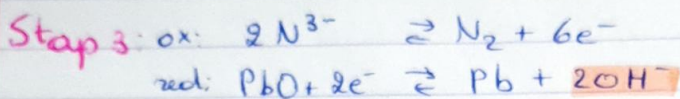 Stap 3: ox: 2 N³⁻ ⇄ N₂ + 6e⁻
red: PbO + 2e⁻ ⇄ Pb + 2OH⁻